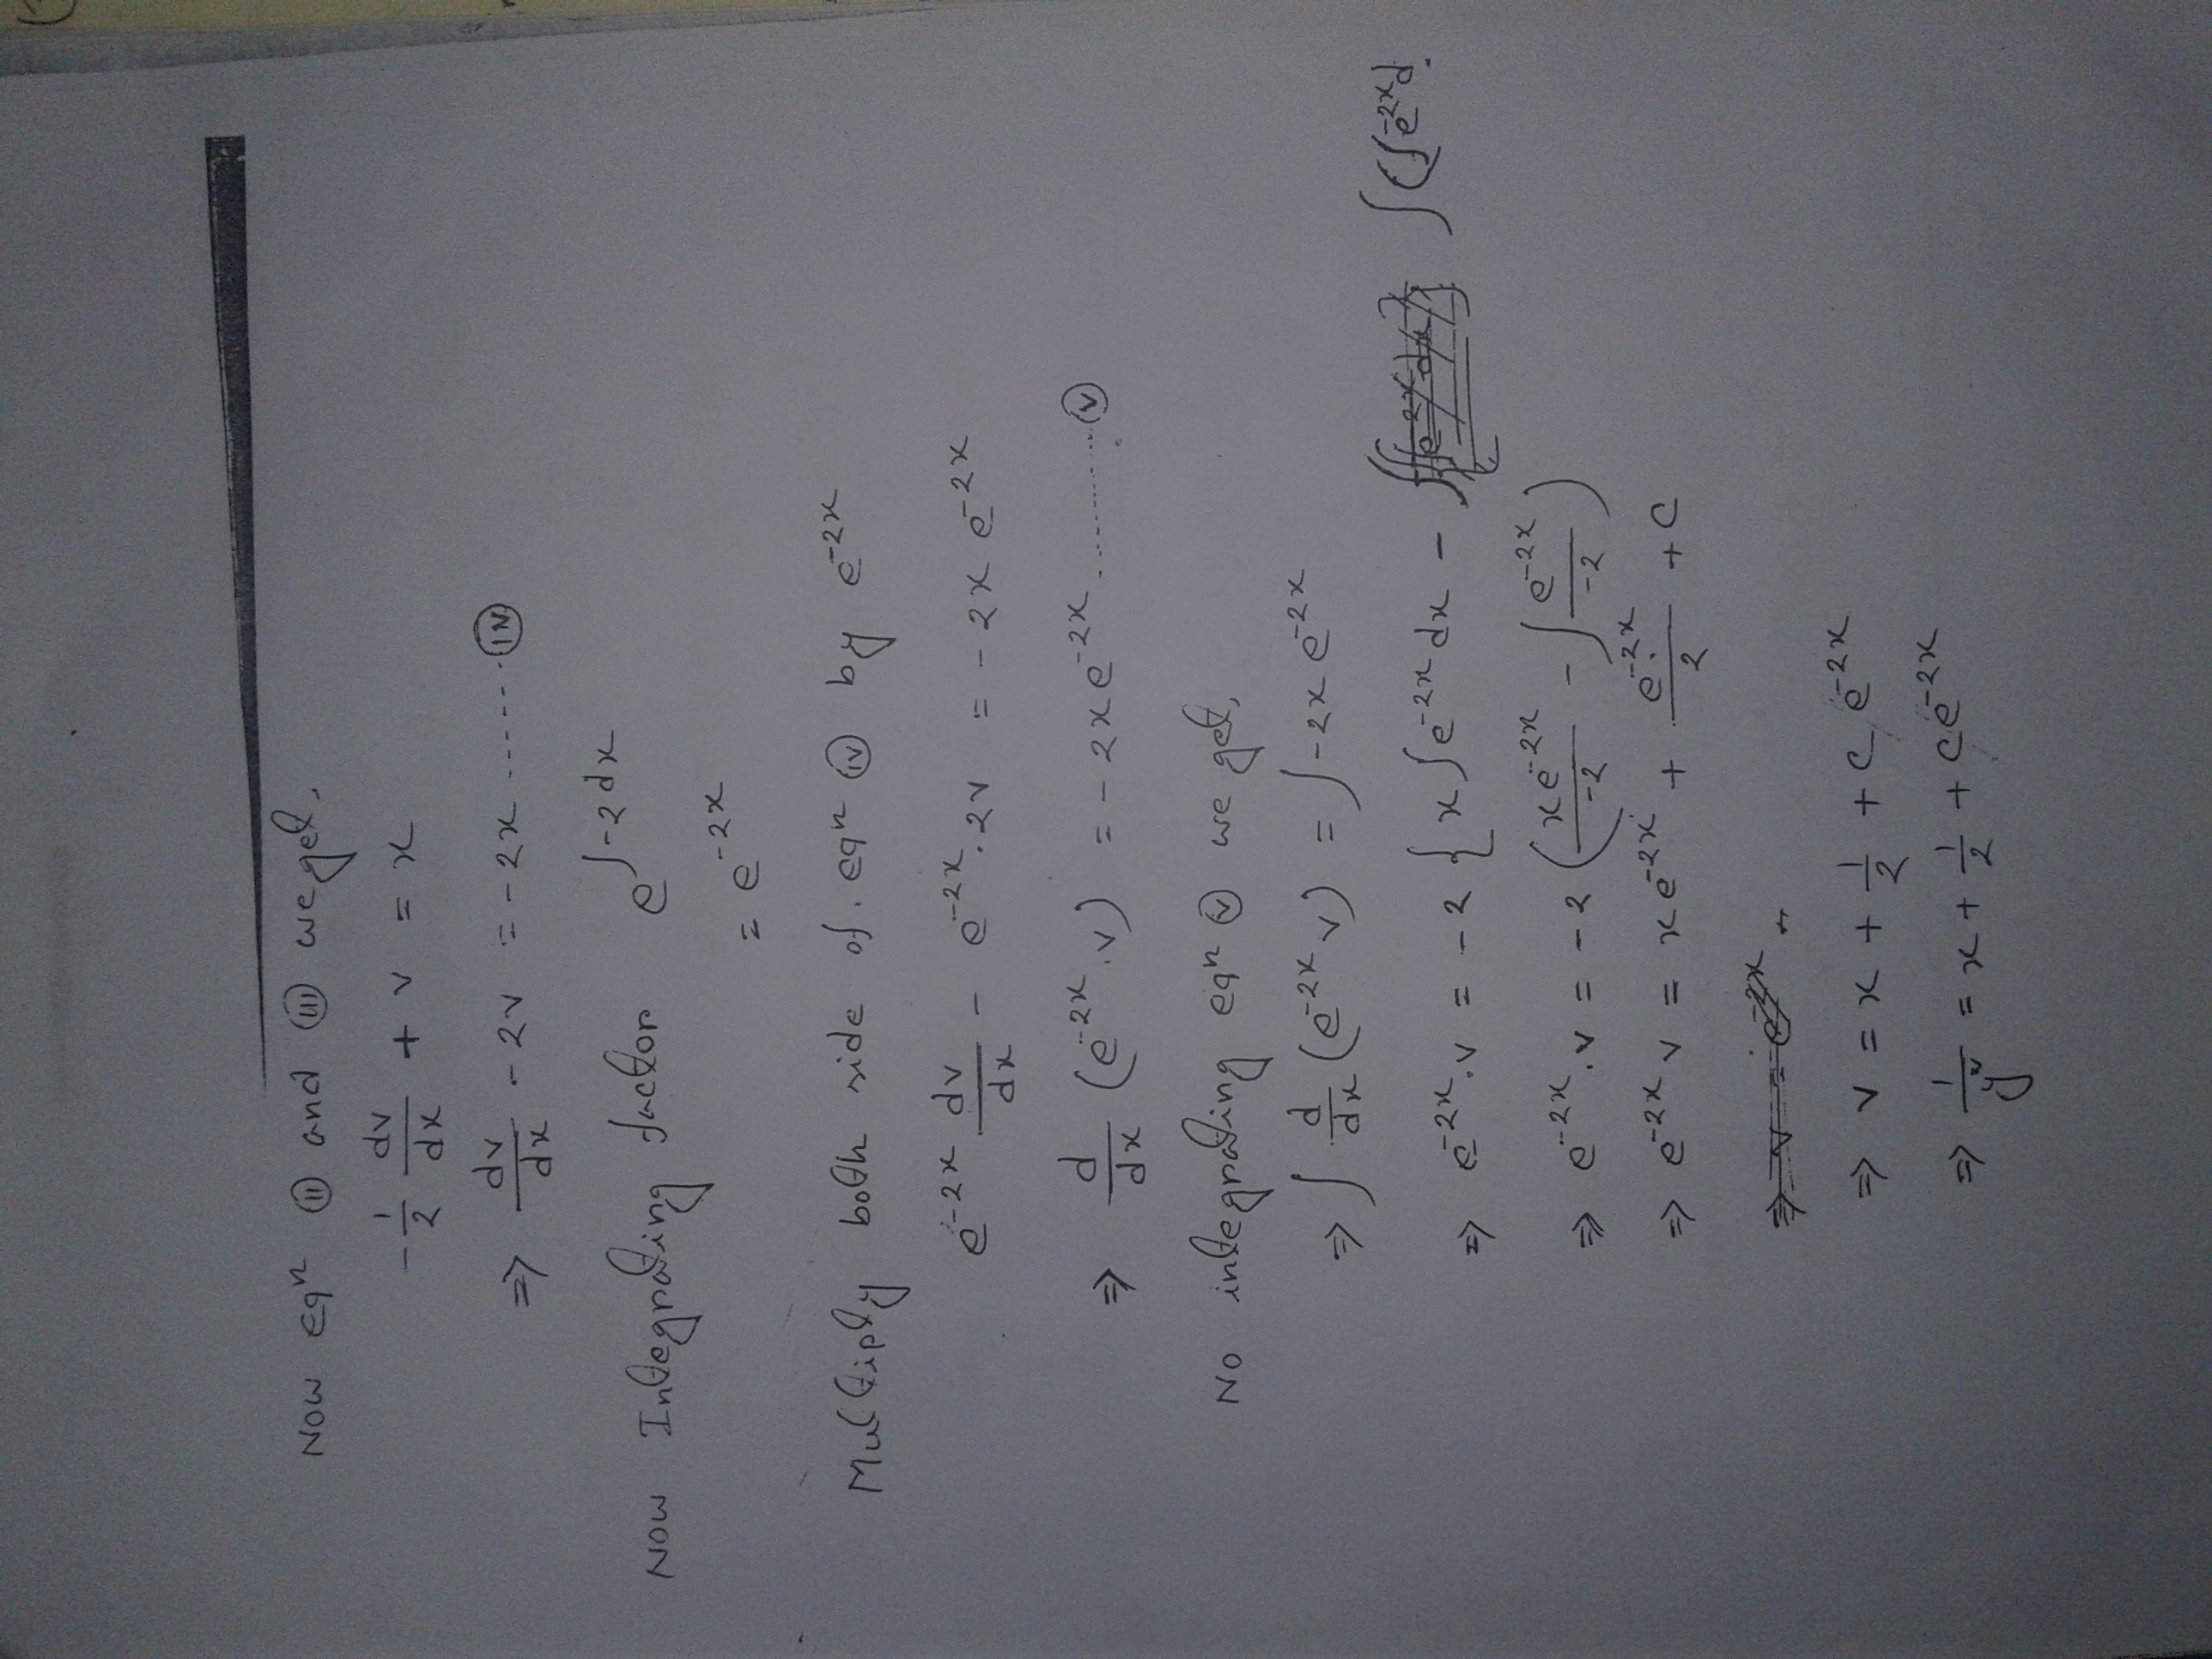 Now eqⁿ (ii) and (iii) we get,
-1/2 dv/dx + v = x
⇒ dv/dx - 2v = -2x ...... (iv)
Now Integrating factor e^∫-2dx
= e^-2x
Multiply both side of. eqⁿ (iv) by e^-2x
e^-2x dv/dx - e^-2x . 2v = -2x e^-2x
⇒ d/dx (e^-2x . v) = -2x e^-2x ........ (v)
No integrating eqⁿ (v) we get,
⇒ ∫ d/dx (e^-2x v) = ∫-2x e^-2x
⇒ e^-2x . v = -2 { x ∫e^-2x dx - ∫(∫e^-2x d
⇒ e^-2x . v = -2 ( xe^-2x/-2 - ∫ e^-2x/-2 )
⇒ e^-2x v = xe^-2x + e^-2x/2 + c
⇒ v = e^-2x
⇒ v = x + 1/2 + c e^-2x
⇒ 1/y² = x + 1/2 + ce^-2x